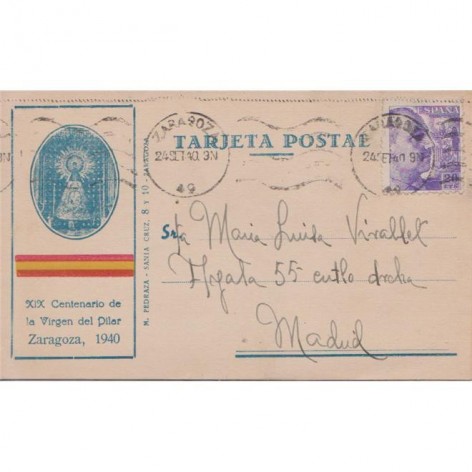 TARJETA POSTAL
ZARAGOZA
24 SET 40. 9N
49
ZARAGOZA
24 SET 40. 9N
49
ESPAÑA
20
Srta Maria Luisa
55
Madrid
XIX Centenario de
la Virgen del Pilar
Zaragoza, 1940
M. PEDRAZA - SANTA CRUZ, 8 y 10 - ZARAGOZA